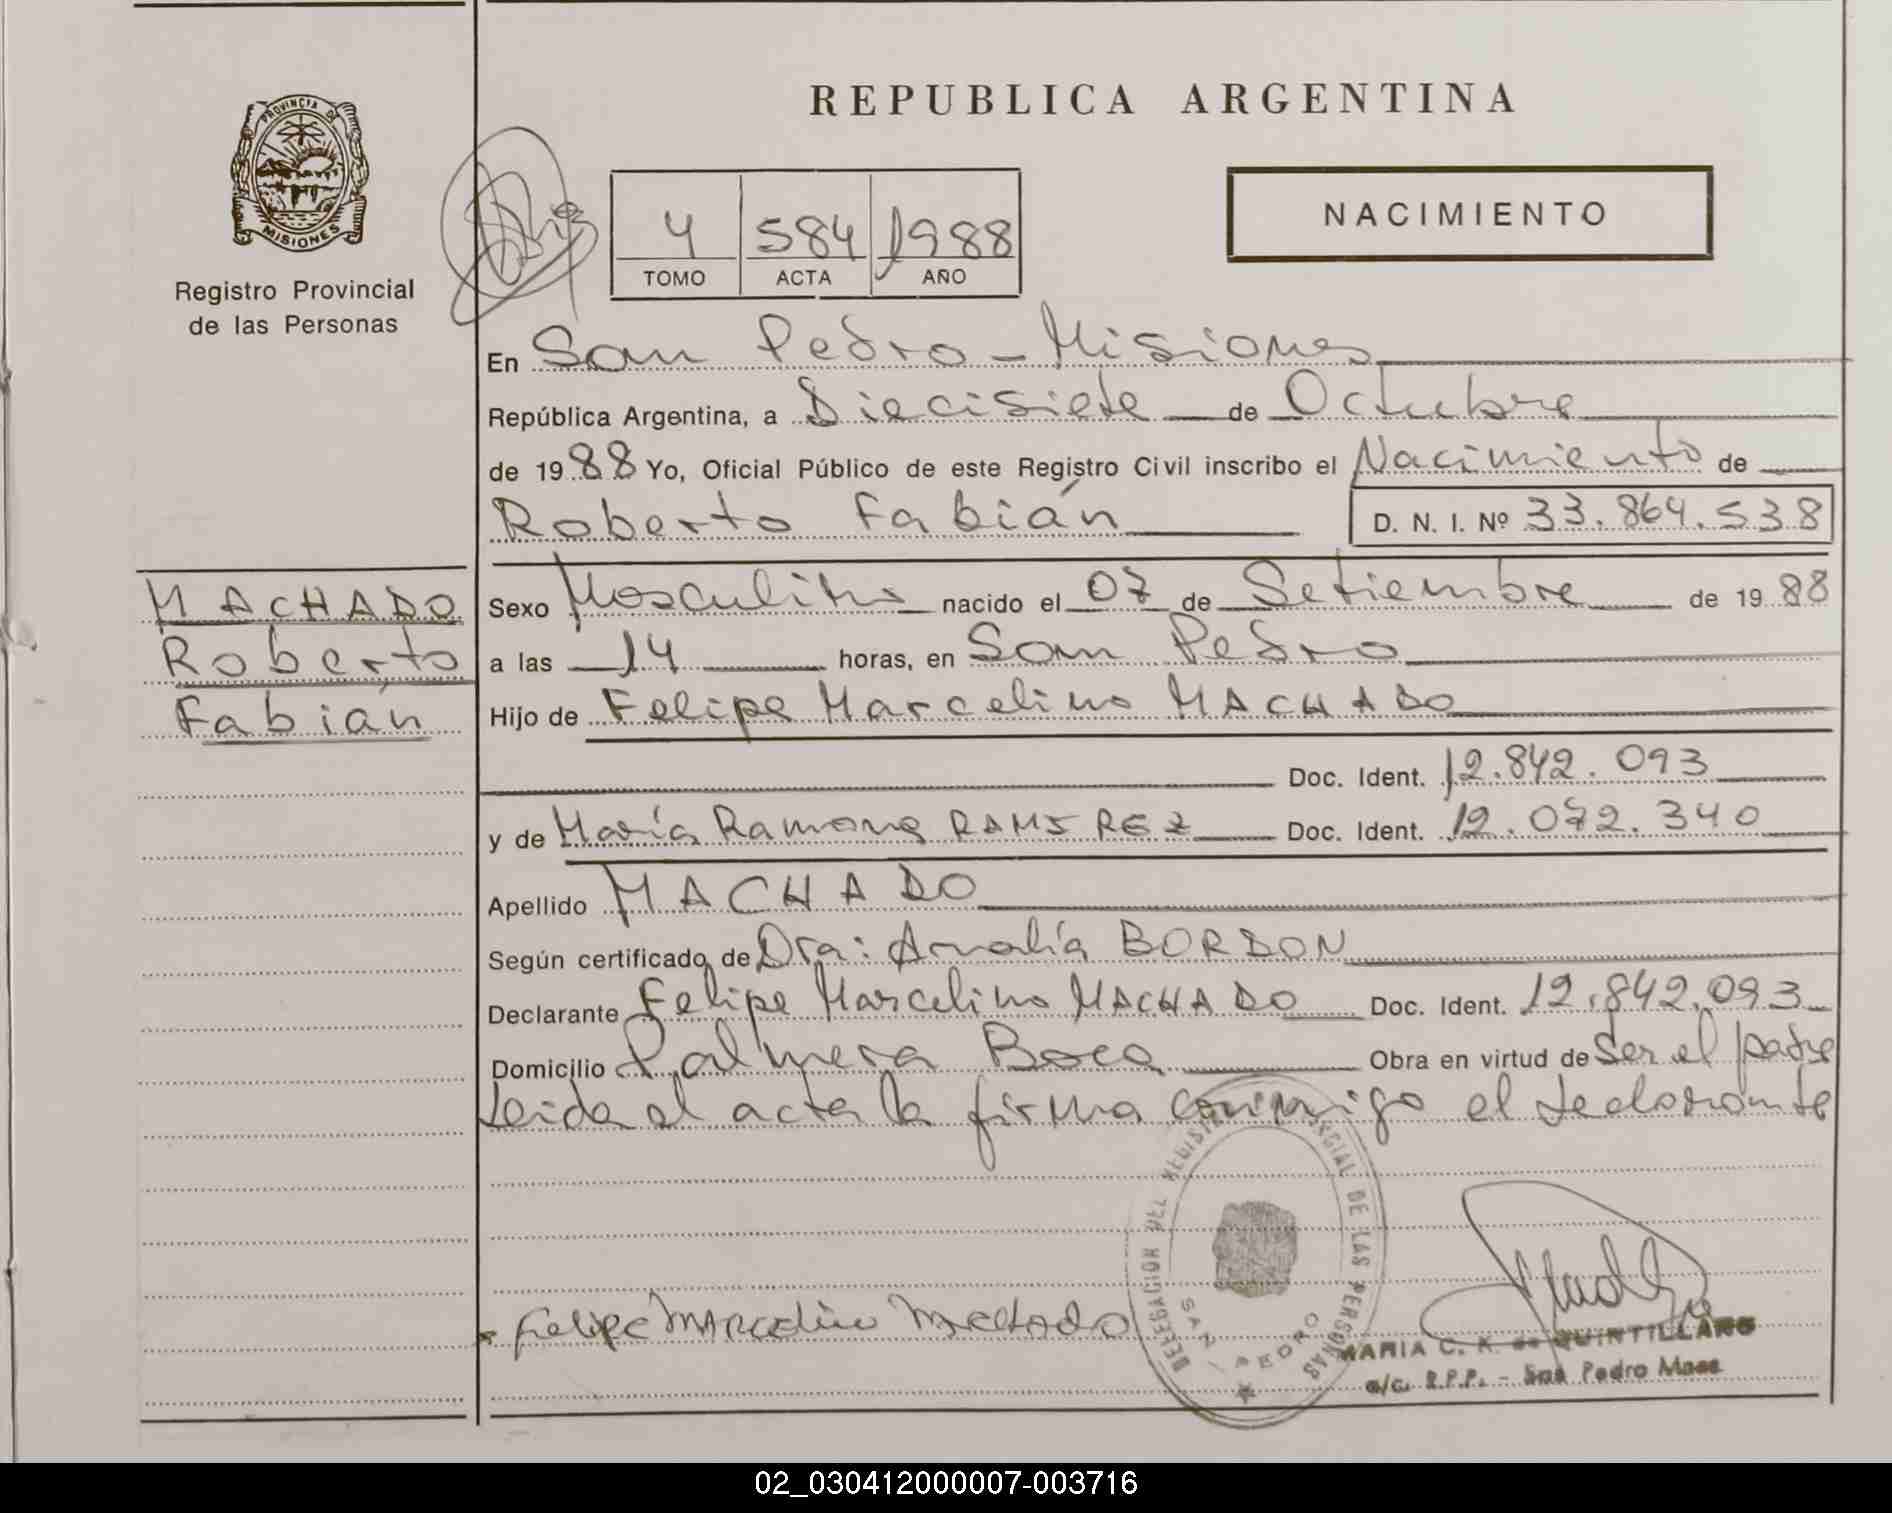 PROVINCIA DE
MISIONES
Registro Provincial
de las Personas
REPUBLICA ARGENTINA
4 584 1988
TOMO ACTA AÑO
NACIMIENTO
En San Pedro - Misiones
República Argentina, a Diecisiete de Octubre
de 1988 Yo, Oficial Público de este Registro Civil inscribo el Nacimiento de
Roberto Fabián
D. N. I. Nº 33.864.538
MACHADO
Roberto
Fabián
Sexo Masculino nacido el 07 de Setiembre de 1988
a las 14 horas, en San Pedro
Hijo de Felipe Marcelino MACHADO
Doc. Ident. 12.842.093
y de María Ramona RAMIREZ Doc. Ident. 12.072.340
Apellido MACHADO
Según certificado de Dra: Amalía BORDON
Declarante Felipe Marcelino MACHADO Doc. Ident. 12.842.093
Domicilio Palmera Boca Obra en virtud de ser el padre
Leida el acta la firma conmigo el declarante
DELEGACION DEL REGISTRO PROVINCIAL DE LAS PERSONAS
SAN PEDRO
Felipe Marcelino Machado
MARIA C. K. de QUINTILLANO
a/c. R.P.P. - San Pedro Mnes
02_030412000007-003716